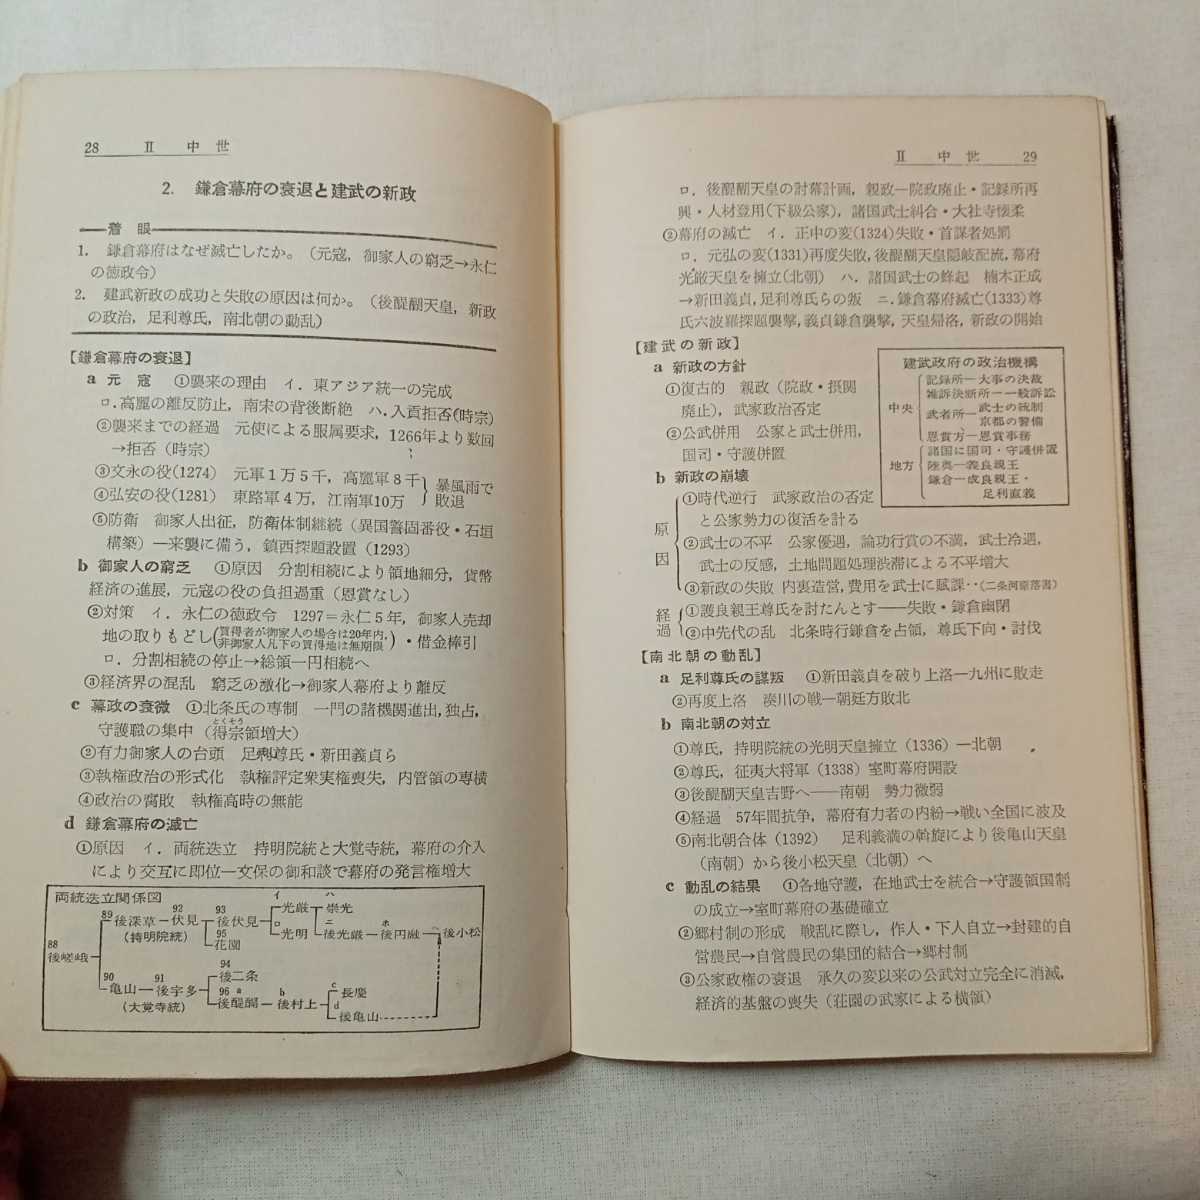 28 Ⅱ 中世
2. 鎌倉幕府の衰退と建武の新政
着眼
1. 鎌倉幕府はなぜ滅亡したか。（元寇，御家人の窮乏→永仁
の徳政令）
2. 建武新政の成功と失敗の原因は何か。（後醍醐天皇，新政
の政治，足利尊氏，南北朝の動乱）
【鎌倉幕府の衰退】
a 元寇 ①襲来の理由 イ．東アジア統一の完成
ロ．高麗の離反防止，南宋の背後断絶 ハ．入貢拒否(時宗)
②襲来までの経過 元使による服属要求，1266年より数回
→拒否（時宗）
③文永の役(1274) 元軍1万5千，高麗軍8千
④弘安の役(1281) 東路軍4万，江南軍10万
暴風雨で
敗退
⑤防衛 御家人出征，防衛体制継続（異国警固番役・石垣
構築）—来襲に備う，鎮西探題設置（1293）
b 御家人の窮乏 ①原因 分割相続により領地細分，貨幣
経済の進展，元寇の役の負担過重（恩賞なし）
②対策 イ．永仁の徳政令 1297＝永仁5年，御家人売却
地の取りもどし(買得者が御家人の場合は20年内，
非御家人凡下の買得地は無期限)・借金棒引
ロ．分割相続の停止→総領一円相続へ
③経済界の混乱 窮乏の激化→御家人幕府より離反
c 幕政の衰微 ①北条氏の専制 一門の諸機関進出，独占，
守護職の集中（得宗領増大）
とくそう
②有力御家人の台頭 足利尊氏・新田義貞ら
③執権政治の形式化 執権評定衆実権喪失，内管領の専横
④政治の腐敗 執権高時の無能
d 鎌倉幕府の滅亡
①原因 イ．両統迭立 持明院統と大覚寺統，幕府の介入
により交互に即位—文保の御和談で幕府の発言権増大
両統迭立関係図
88
後嵯峨
89
後深草
(持明院統)
92
伏見
93
後伏見
95
花園
イ
光厳
ロ
光明
ハ
崇光
ニ
後光厳
ホ
後円融
ヘ
後小松
90
亀山
91
後宇多
(大覚寺統)
94
後二条
96 a
後醍醐
b
後村上
c
長慶
d
後亀山
Ⅱ 中世 29
ロ．後醍醐天皇の討幕計画，親政—院政廃止・記録所再
興・人材登用(下級公家)，諸国武士糾合・大社寺懐柔
②幕府の滅亡 イ．正中の変(1324)失敗・首謀者処罰
ロ．元弘の変(1331)再度失敗，後醍醐天皇隠岐配流，幕府
光厳天皇を擁立(北朝) ハ．諸国武士の蜂起 楠木正成
→新田義貞，足利尊氏らの叛 ニ．鎌倉幕府滅亡(1333)尊
氏六波羅探題襲撃，義貞鎌倉襲撃，天皇帰洛，新政の開始
【建武の新政】
a 新政の方針
①復古的 親政（院政・摂関
廃止），武家政治否定
②公武併用 公家と武士併用，
国司・守護併置
建武政府の政治機構
中央
記録所—大事の決裁
雑訴決断所—一般訴訟
武者所—武士の統制
京都の警備
恩賞方—恩賞事務
地方
諸国に国司・守護併置
陸奥—義良親王
鎌倉—成良親王・
足利直義
b 新政の崩壊
原因
①時代逆行 武家政治の否定
と公家勢力の復活を計る
②武士の不平 公家優遇，論功行賞の不満，武士冷遇，
武士の反感，土地問題処理渋滞による不平増大
③新政の失敗 内裏造営，費用を武士に賦課‥(二条河原落書)
経過
①護良親王尊氏を討たんとす——失敗・鎌倉幽閉
②中先代の乱 北条時行鎌倉を占領，尊氏下向・討伐
【南北朝の動乱】
a 足利尊氏の謀叛 ①新田義貞を破り上洛—九州に敗走
②再度上洛 湊川の戦—朝廷方敗北
b 南北朝の対立
①尊氏，持明院統の光明天皇擁立（1336）—北朝
②尊氏，征夷大将軍（1338）室町幕府開設
③後醍醐天皇吉野へ——南朝 勢力微弱
④経過 57年間抗争，幕府有力者の内紛→戦い全国に波及
⑤南北朝合体（1392） 足利義満の斡旋により後亀山天皇
（南朝）から後小松天皇（北朝）へ
c 動乱の結果 ①各地守護，在地武士を統合→守護領国制
の成立→室町幕府の基礎確立
②郷村制の形成 戦乱に際し，作人・下人自立→封建的自
営農民→自営農民の集団的結合→郷村制
③公家政権の衰退 承久の変以来の公武対立完全に消滅，
経済的基盤の喪失（荘園の武家による横領）